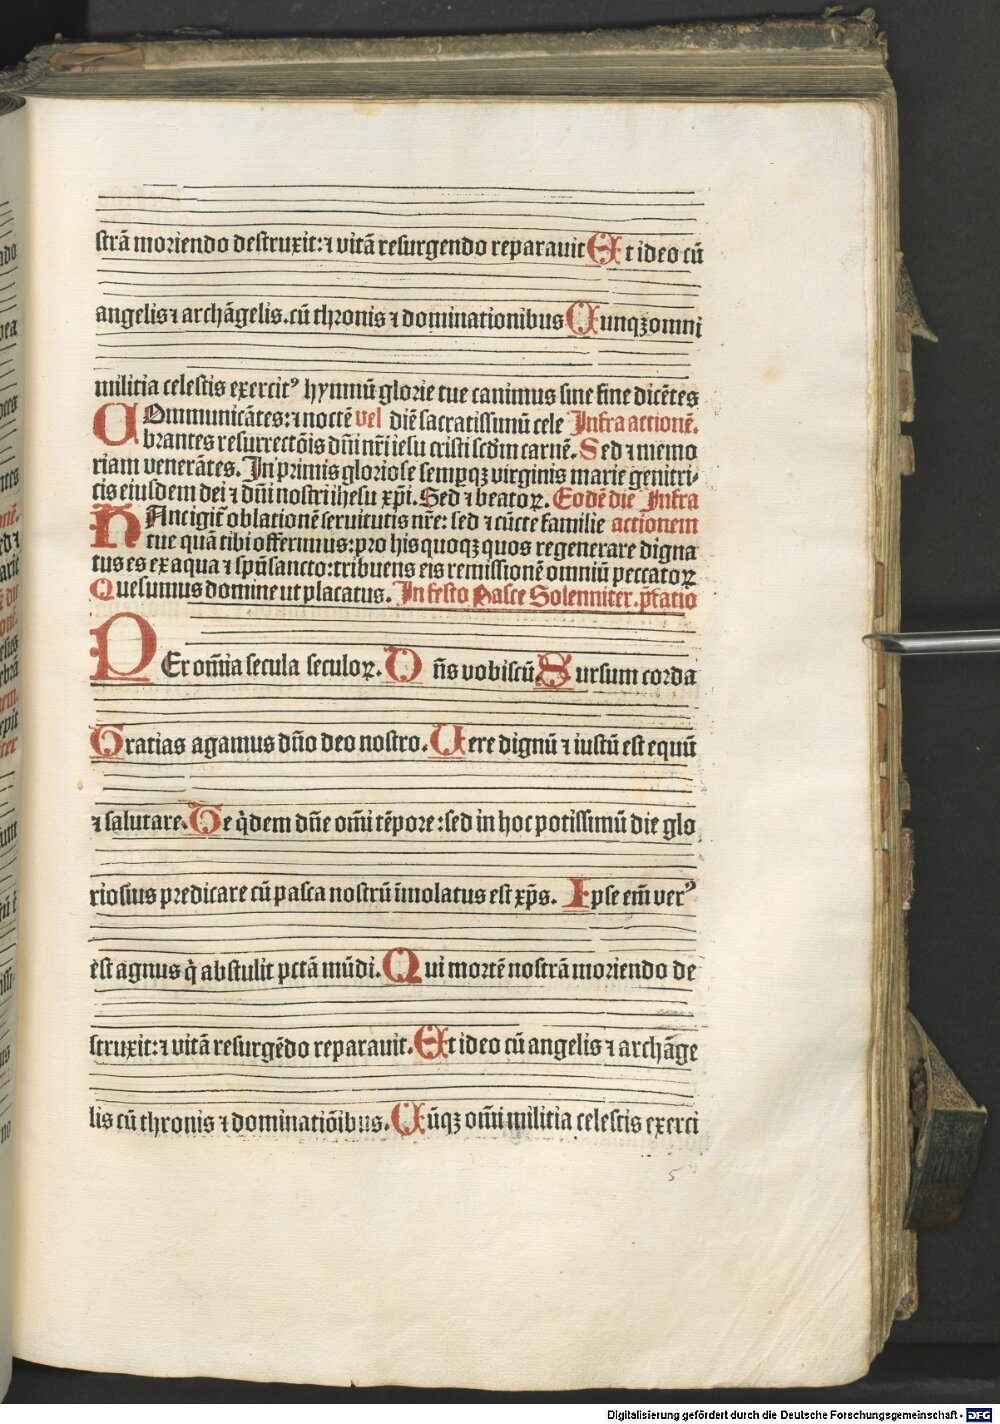 strā moriendo destruxit: ⁊ vitā resurgendo reparauit Et ideo cū
angelis ⁊ archāgelis. cū thronis ⁊ dominationibus Cunqꝫ omni
militia celestis exercitꝰ hymnū glorie tue canimus sine fine dicētes
COmmunicātes: ⁊ noctē vel diē sacratissimū cele Infra actionē.
brantes resurrectōis dn̄i nr̄i iesu cristi scd̄m carnē. Sed ⁊ memo
riam venerātes. In primis gloriose semꝑqꝫ virginis marie genitri⸗
cis eiusdem dei ⁊ dn̄i nostri ihesu xp̄i. Sed ⁊ beatoꝝ. Eodē die Infra
HAnc igit̄ oblationē seruitutis nr̄e: sed ⁊ cūcte familie actionem
tue quā tibi offerimus: pro his quoqꝫ quos regenerare digna
tus es ex aqua ⁊ spū sancto: tribuens eis remissionē omniū peccatoꝝ
Quesumus domine ut placatus. In festo Pasce Solenniter. p̄fatio
PEr om̄ia secula seculoꝝ. Dn̄s vobiscū. Sursum corda
Gratias agamus dn̄o deo nostro. Uere dignū ⁊ iustū est equū
⁊ salutare. Te q̇dem dn̄e om̄i tēpore: sed in hoc potissimū die glo
riosius predicare cū pasca nostrū īmolatus est xp̄s. Ipse em̄ verꝰ
est agnus q̇ abstulit pctā mūdi. Qui mortē nostrā moriendo de
struxit: ⁊ vitā resurgēdo reparauit. Et ideo cū angelis ⁊ archāge
lis cū thronis ⁊ dominatiōibus. Cūqꝫ om̄i militia celestis exerci
5
Digitalisierung gefördert durch die Deutsche Forschungsgemeinschaft - DFG